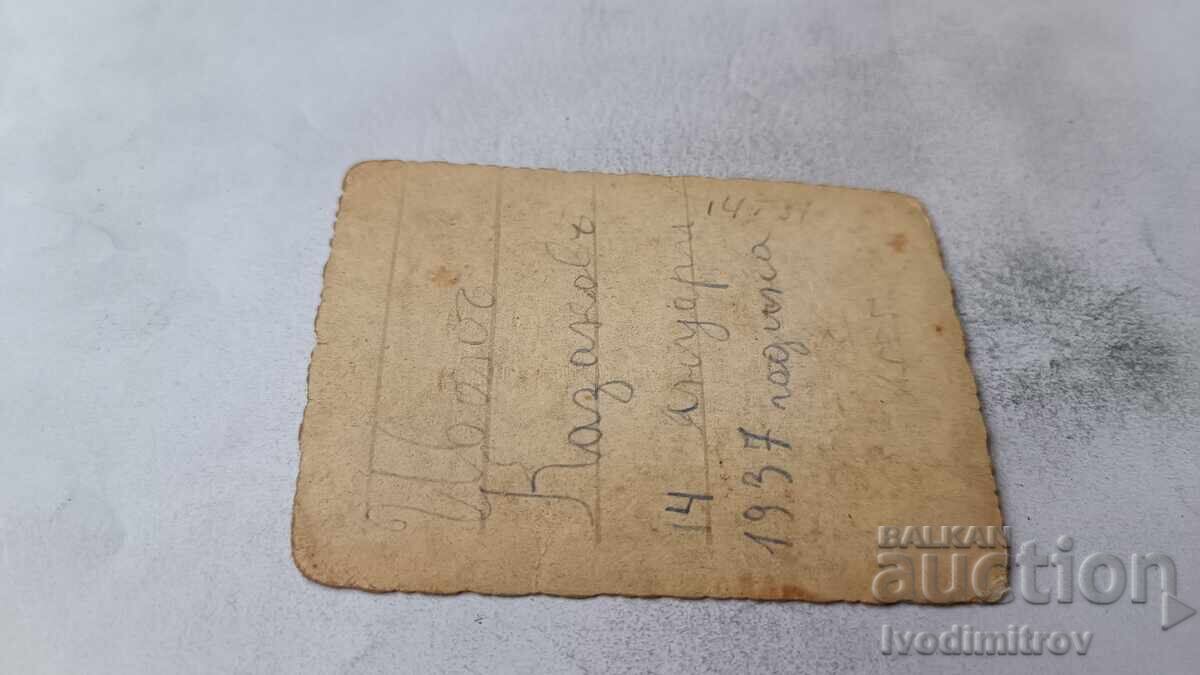 Казаковъ
14 януари
1937 година
BALKAN
auction
Ivodimitrov